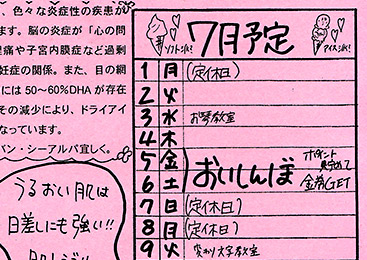 、色々な炎症性の疾患が
ます。脳の炎症が「心の問
痛や子宮内膜症など過剰
妊症の関係。また、目の網
には50～60%DHAが存在
その減少により、ドライアイ
なっています。
バン・シーアルパ宜しく。
うるおい肌は
日差しにも強い!!
7月予定
ソフト
アイス
1 月 (定休日)
2 火
3 水 お琴教室
4 木
5 金
6 土
おいしんぼ
ポイント
貯めて
金券GET
7 日 (定休日)
8 日 (定休日)
9 火 大学教室